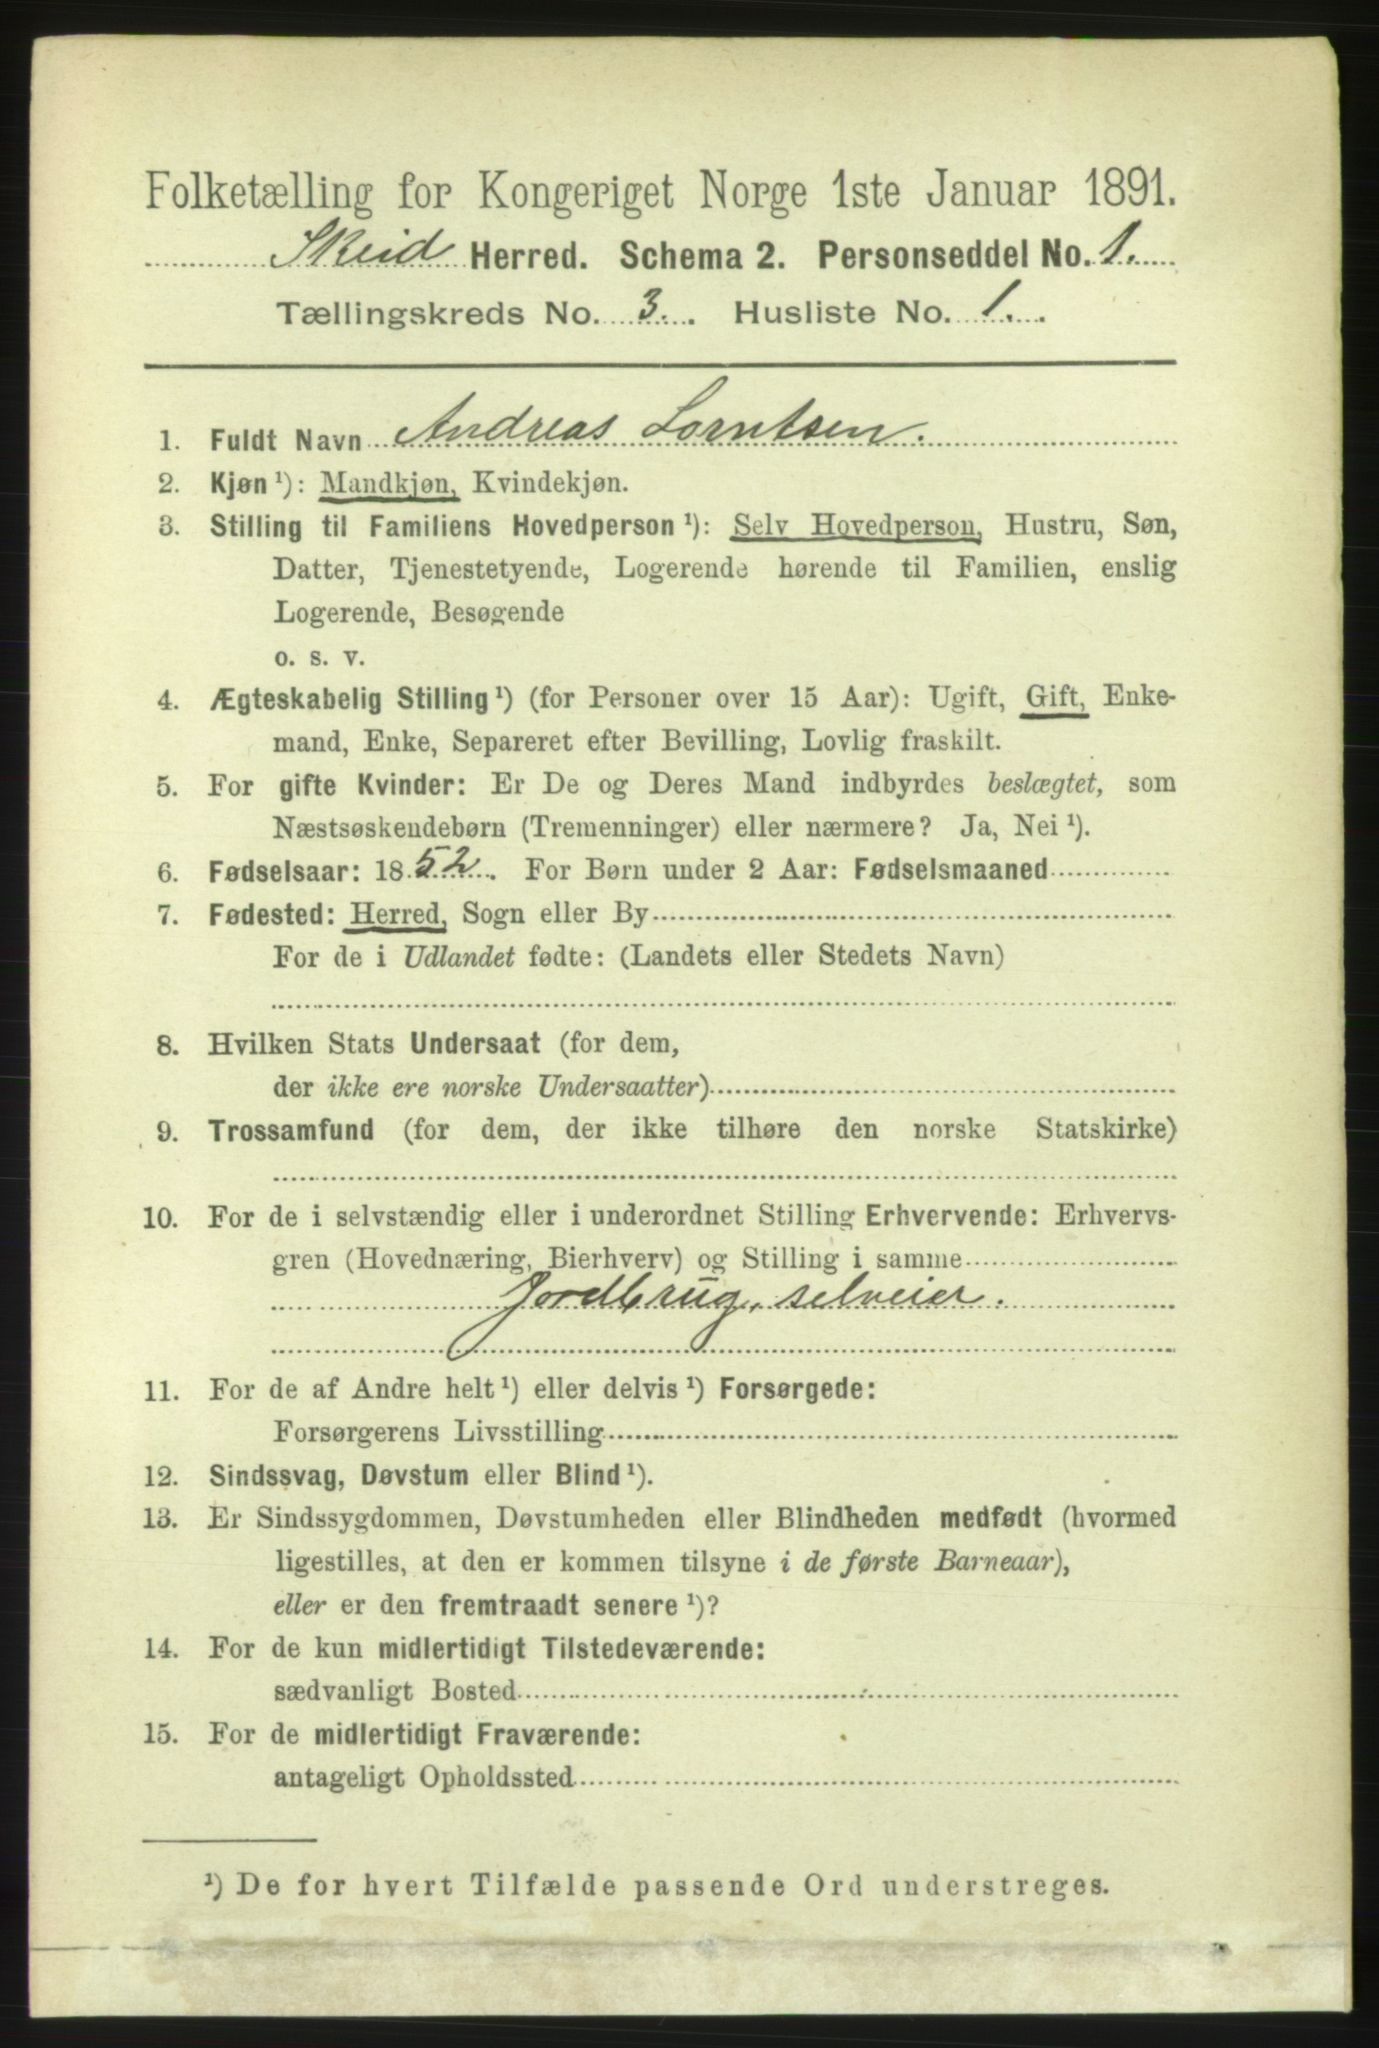 Folketælling for Kongeriget Norge 1ste Januar 1891.
Skeid Herred. Schema 2. Personseddel No. 1.
Tællingskreds No. 3. Husliste No. 1.
1. Fuldt Navn Andreas Lorntsen.
2. Kjøn¹): Mandkjøn, Kvindekjøn.
3. Stilling til Familiens Hovedperson¹): Selv Hovedperson, Hustru, Søn,
Datter, Tjenestetyende, Logerende hørende til Familien, enslig
Logerende, Besøgende
o. s. v.
4. Ægteskabelig Stilling¹) (for Personer over 15 Aar): Ugift, Gift, Enke-
mand, Enke, Separeret efter Bevilling, Lovlig fraskilt.
5. For gifte Kvinder: Er De og Deres Mand indbyrdes beslægtet, som
Næstsøskendebørn (Tremenninger) eller nærmere? Ja, Nei¹).
6. Fødselsaar: 1852. For Børn under 2 Aar: Fødselsmaaned
7. Fødested: Herred, Sogn eller By
For de i Udlandet fødte: (Landets eller Stedets Navn)
8. Hvilken Stats Undersaat (for dem,
der ikke ere norske Undersaatter)
9. Trossamfund (for dem, der ikke tilhøre den norske Statskirke)
10. For de i selvstændig eller i underordnet Stilling Erhvervende: Erhvervs-
gren (Hovednæring, Bierhverv) og Stilling i samme
Jordbrug, selveier.
11. For de af Andre helt¹) eller delvis¹) Forsørgede:
Forsørgerens Livsstilling
12. Sindssvag, Døvstum eller Blind¹).
13. Er Sindssygdommen, Døvstumheden eller Blindheden medfødt (hvormed
ligestilles, at den er kommen tilsyne i de første Barneaar),
eller er den fremtraadt senere¹)?
14. For de kun midlertidigt Tilstedeværende:
sædvanligt Bosted
15. For de midlertidigt Fraværende:
antageligt Opholdssted
¹) De for hvert Tilfælde passende Ord understreges.